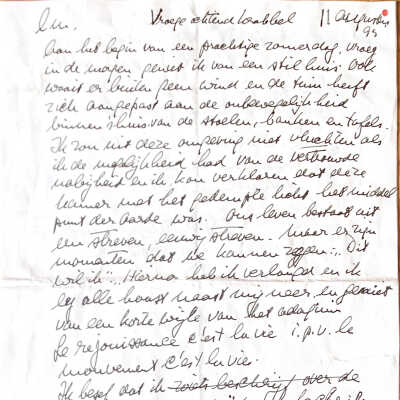 Lm. Vroege ochtend krabbel 11 augustus
95
Aan het begin van een prachtige zomerdag, vroeg
in de morgen geniet ik van een stil huis. Ook
waait er buiten geen wind en de tuin heeft
zich aangepast aan de onbewegelijkheid
binnenshuis van de stoelen, banken en tafels.
Ik zou uit deze omgeving niet vluchten als
ik de mogelijkheid had van de vertrouwde
nabijheid en ik kan verklaren dat deze
kamer met het gedempte licht het middel
punt der aarde was. Ons leven bestaat uit
een streven, eeuwig streven. Maar er zijn
momenten dat we kunnen zeggen:.. Dit
wil ik".. Hierna heb ik verlangd en ik
leg alle haast naast mij neer, en geniet
van een korte wijle van het adagium
Le rejouissance c'est la vie i.p.v. le
mouvement c'est la vie.
Ik besef dat ik zoiets beschrijf over de